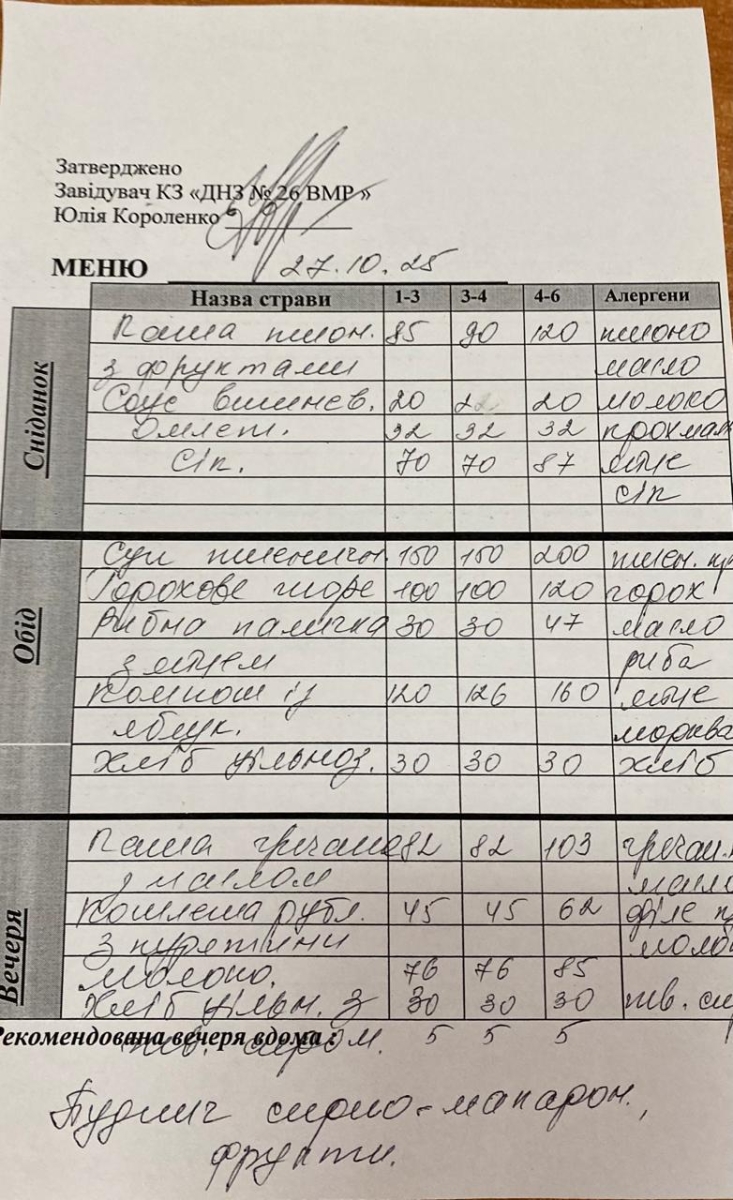 Затверджено
Завідувач КЗ «ДНЗ № 26 ВМР »
Юлія Короленко
МЕНЮ 27.10.25
Назва страви 1-3 3-4 4-6 Алергени
Сніданок
Каша пшон. 85 90 120 пшоно
з фруктами масло
Соус вишнев. 20 22 20 молоко
Омлет. 32 32 32 крохмал
Сік. 70 70 87 яйце
сік
Обід
Суп пшеничн. 150 150 200 пшен. кр
Горохове пюре 100 100 120 горох
Рибна паличка 30 30 47 масло
з яйцем риба
Компот із 120 126 160 яйце
яблук. морква
Хліб цільноз. 30 30 30 хліб
Вечеря
Каша гречана 82 82 103 гречан.
з маслом масло
Котлета рубл. 45 45 62 філе
з курятини молок
Молоко. 76 76 85
Хліб цільн. з 30 30 30 тв. си
Рекомендована вечеря вдома :
тв. сиром. 5 5 5
Пудинг сирно-макарон.,
фрукти.